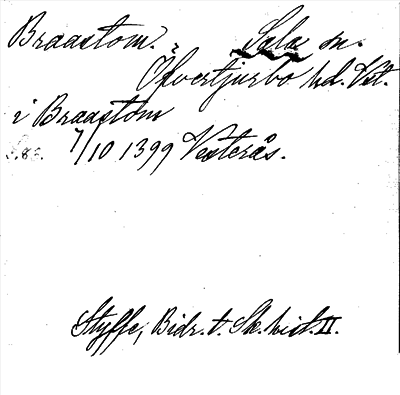 Braastom. ? Sala sn.
Öfvertjurbo hd. Vst.
i Braastom
S. 85. 7/10 1399 Vesterås.
Styffe, Bidr. t. Sk. hist. II.